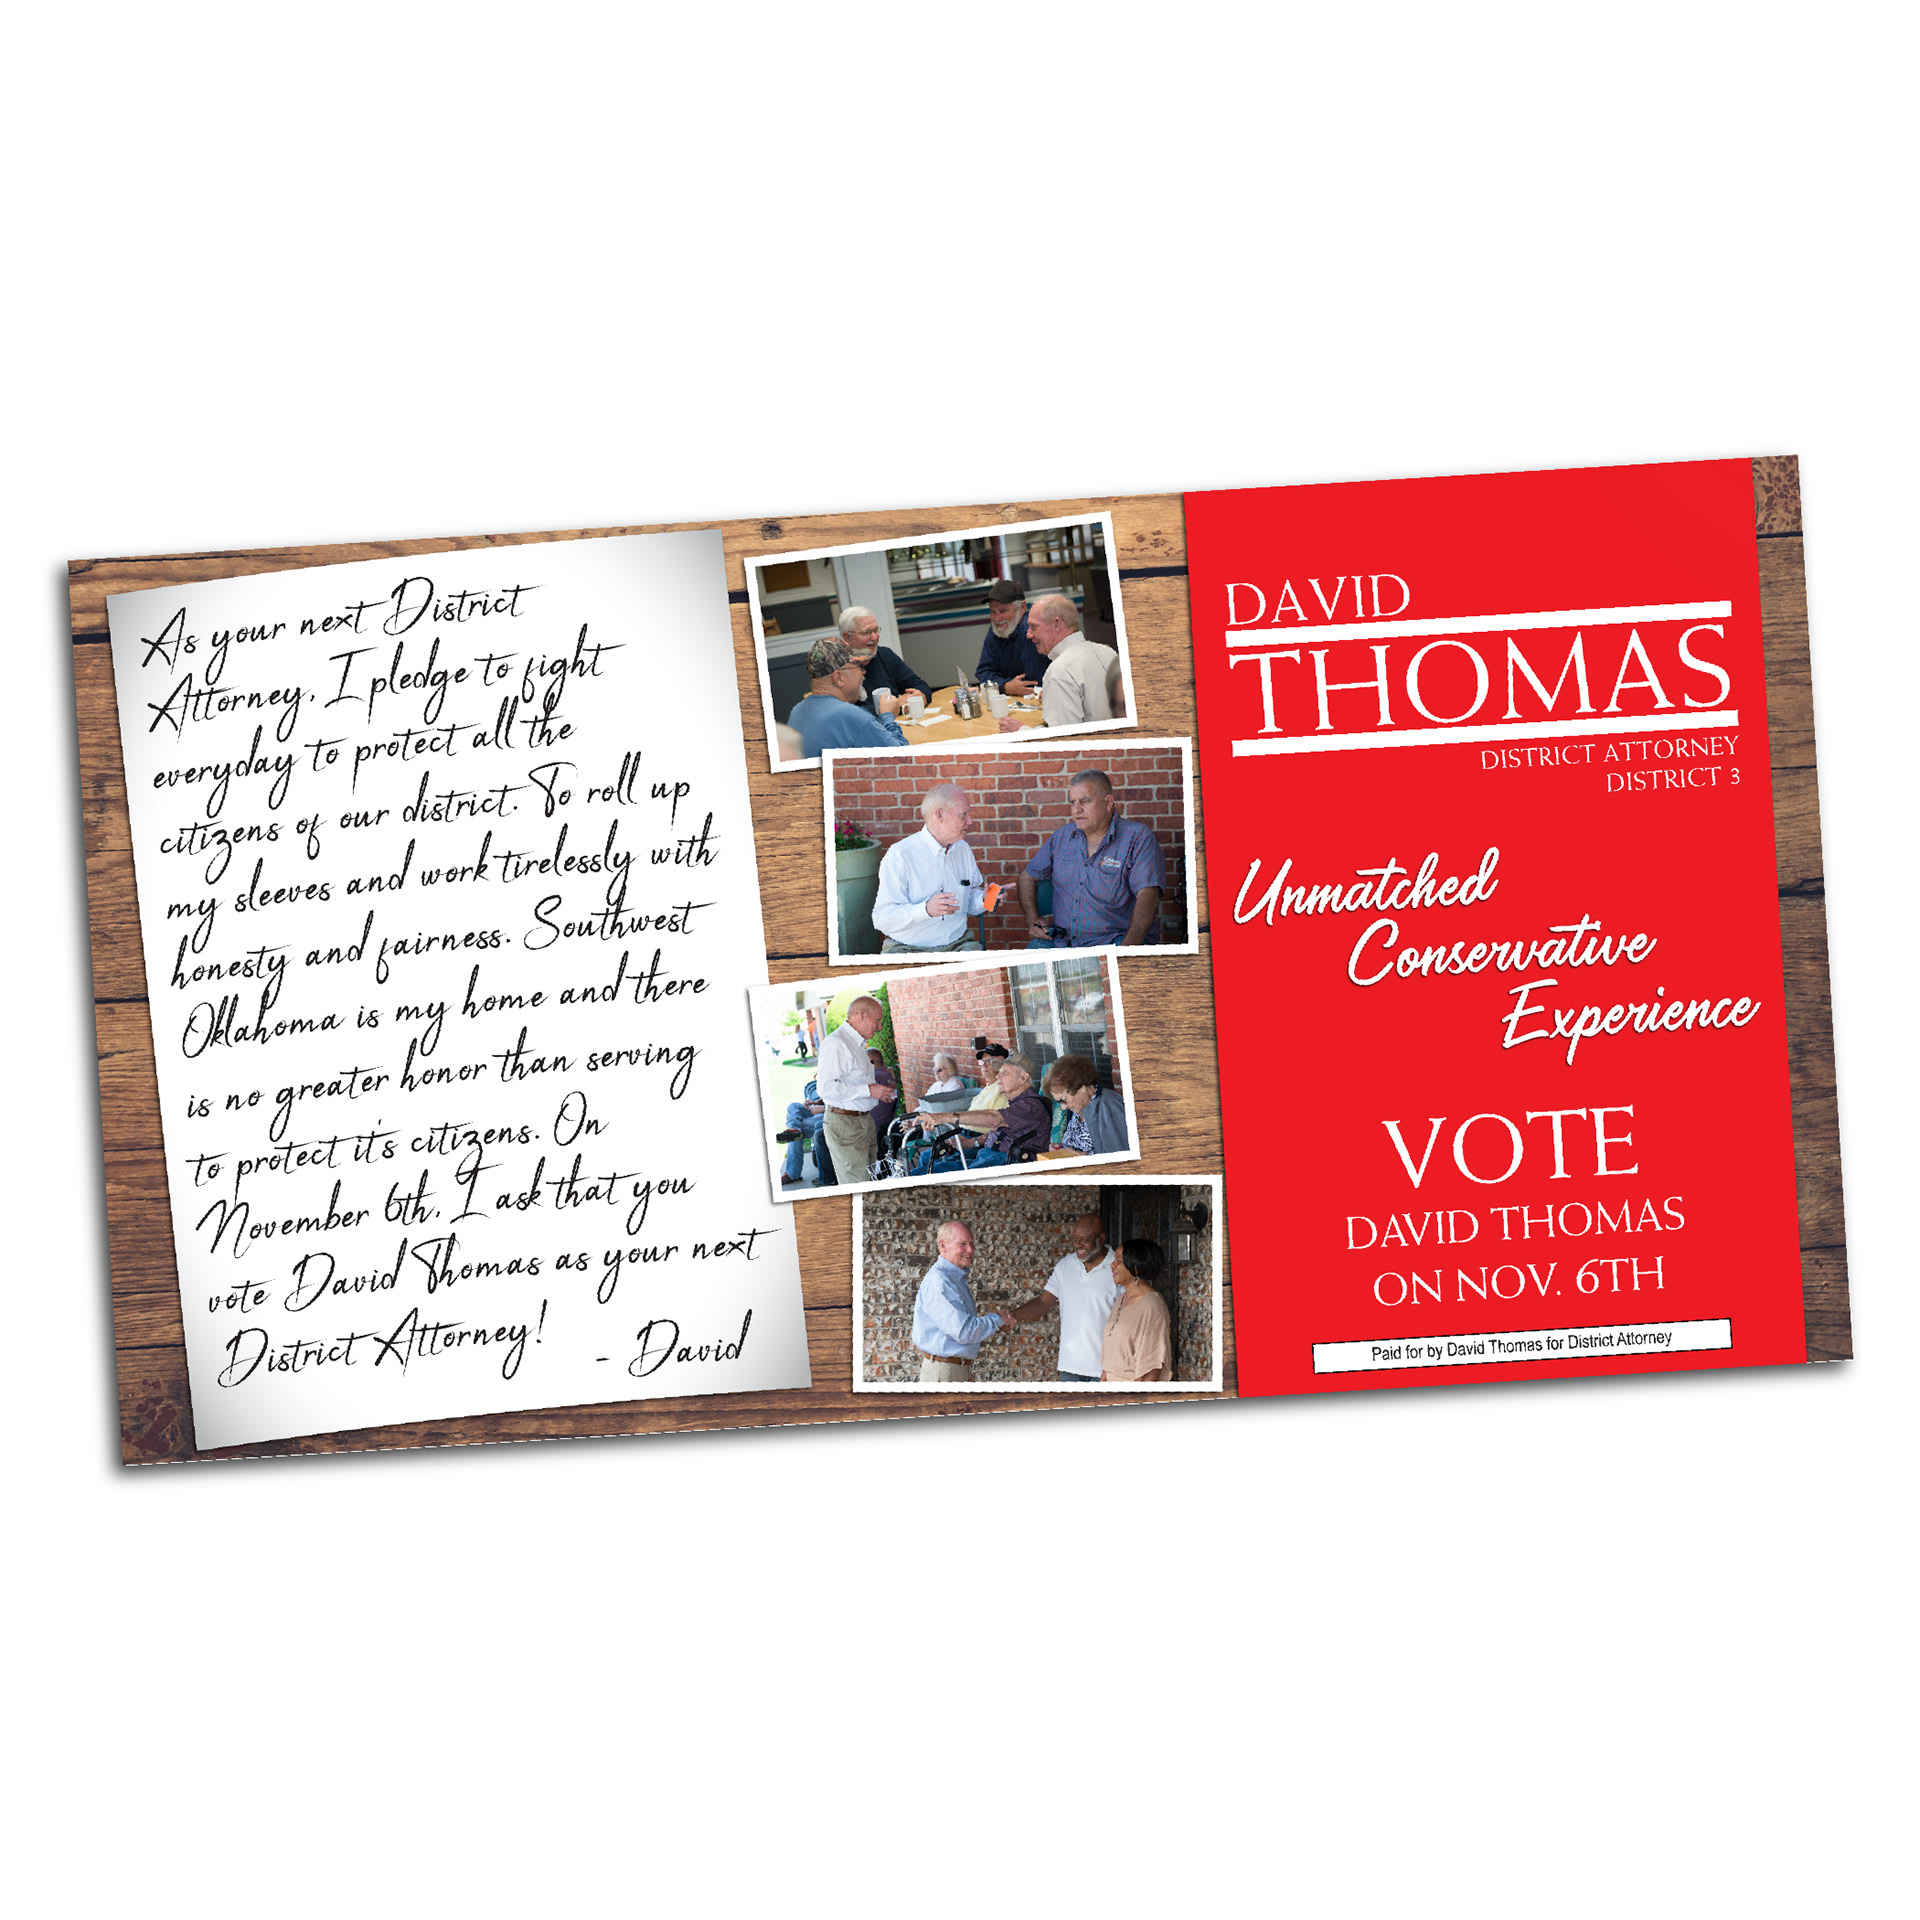 As your next District
Attorney, I pledge to fight
everyday to protect all the
citizens of our district. To roll up
my sleeves and work tirelessly with
honesty and fairness. Southwest
Oklahoma is my home and there
is no greater honor than serving
to protect it's citizens. On
November 6th, I ask that you
vote David Thomas as your next
District Attorney!
- David
DAVID
THOMAS
DISTRICT ATTORNEY
DISTRICT 3
Unmatched
Conservative
Experience
VOTE
DAVID THOMAS
ON NOV. 6TH
Paid for by David Thomas for District Attorney